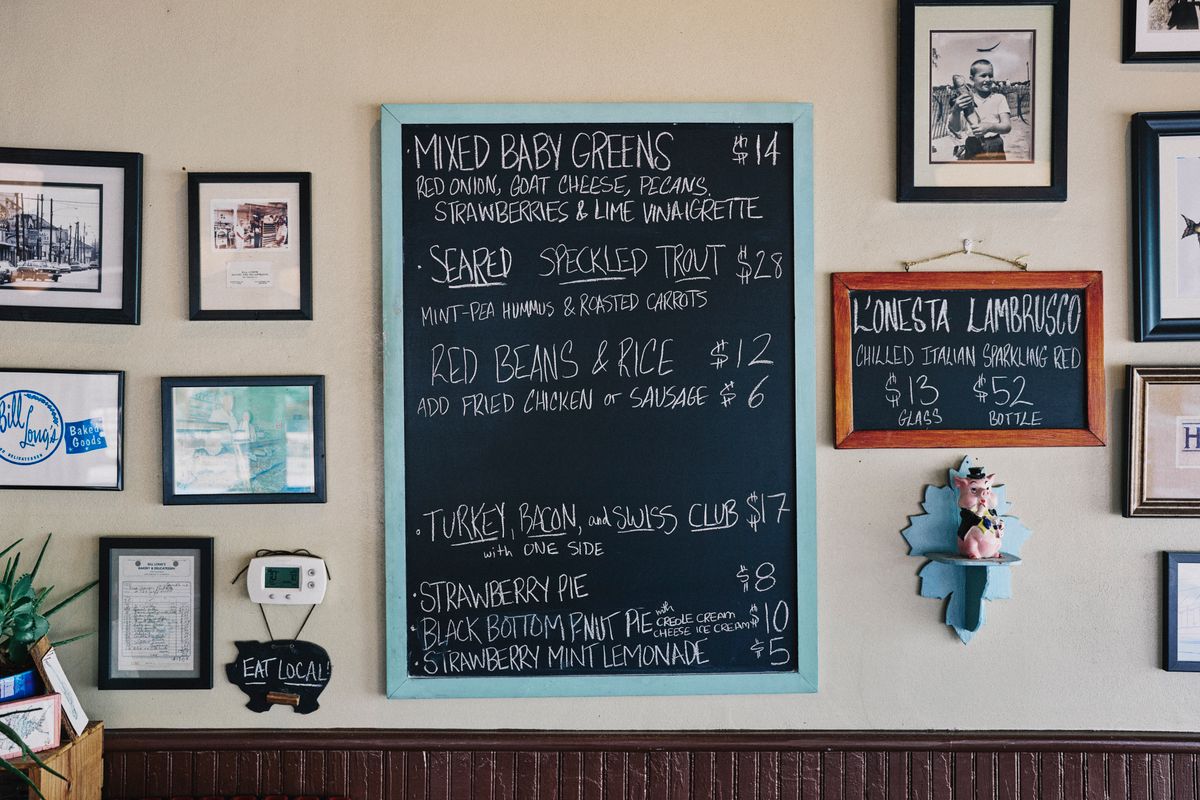 MIXED BABY GREENS $14
RED ONION, GOAT CHEESE, PECANS,
STRAWBERRIES & LIME VINAIGRETTE
SEARED SPECKLED TROUT $28
MINT-PEA HUMMUS & ROASTED CARROTS
RED BEANS & RICE $12
ADD FRIED CHICKEN or SAUSAGE $6
TURKEY, BACON, and SWISS CLUB $17
with ONE SIDE
STRAWBERRY PIE $8
BLACK BOTTOM P.NUT PIE with CREOLE CREAM CHEESE ICE CREAM $10
STRAWBERRY MINT LEMONADE $5
L'ONESTA LAMBRUSCO
CHILLED ITALIAN SPARKLING RED
$13 $52
GLASS BOTTLE
Bill Long's
Baked Goods
BILL LONG'S
BAKERY & DELICATESSEN
EAT LOCAL!
H